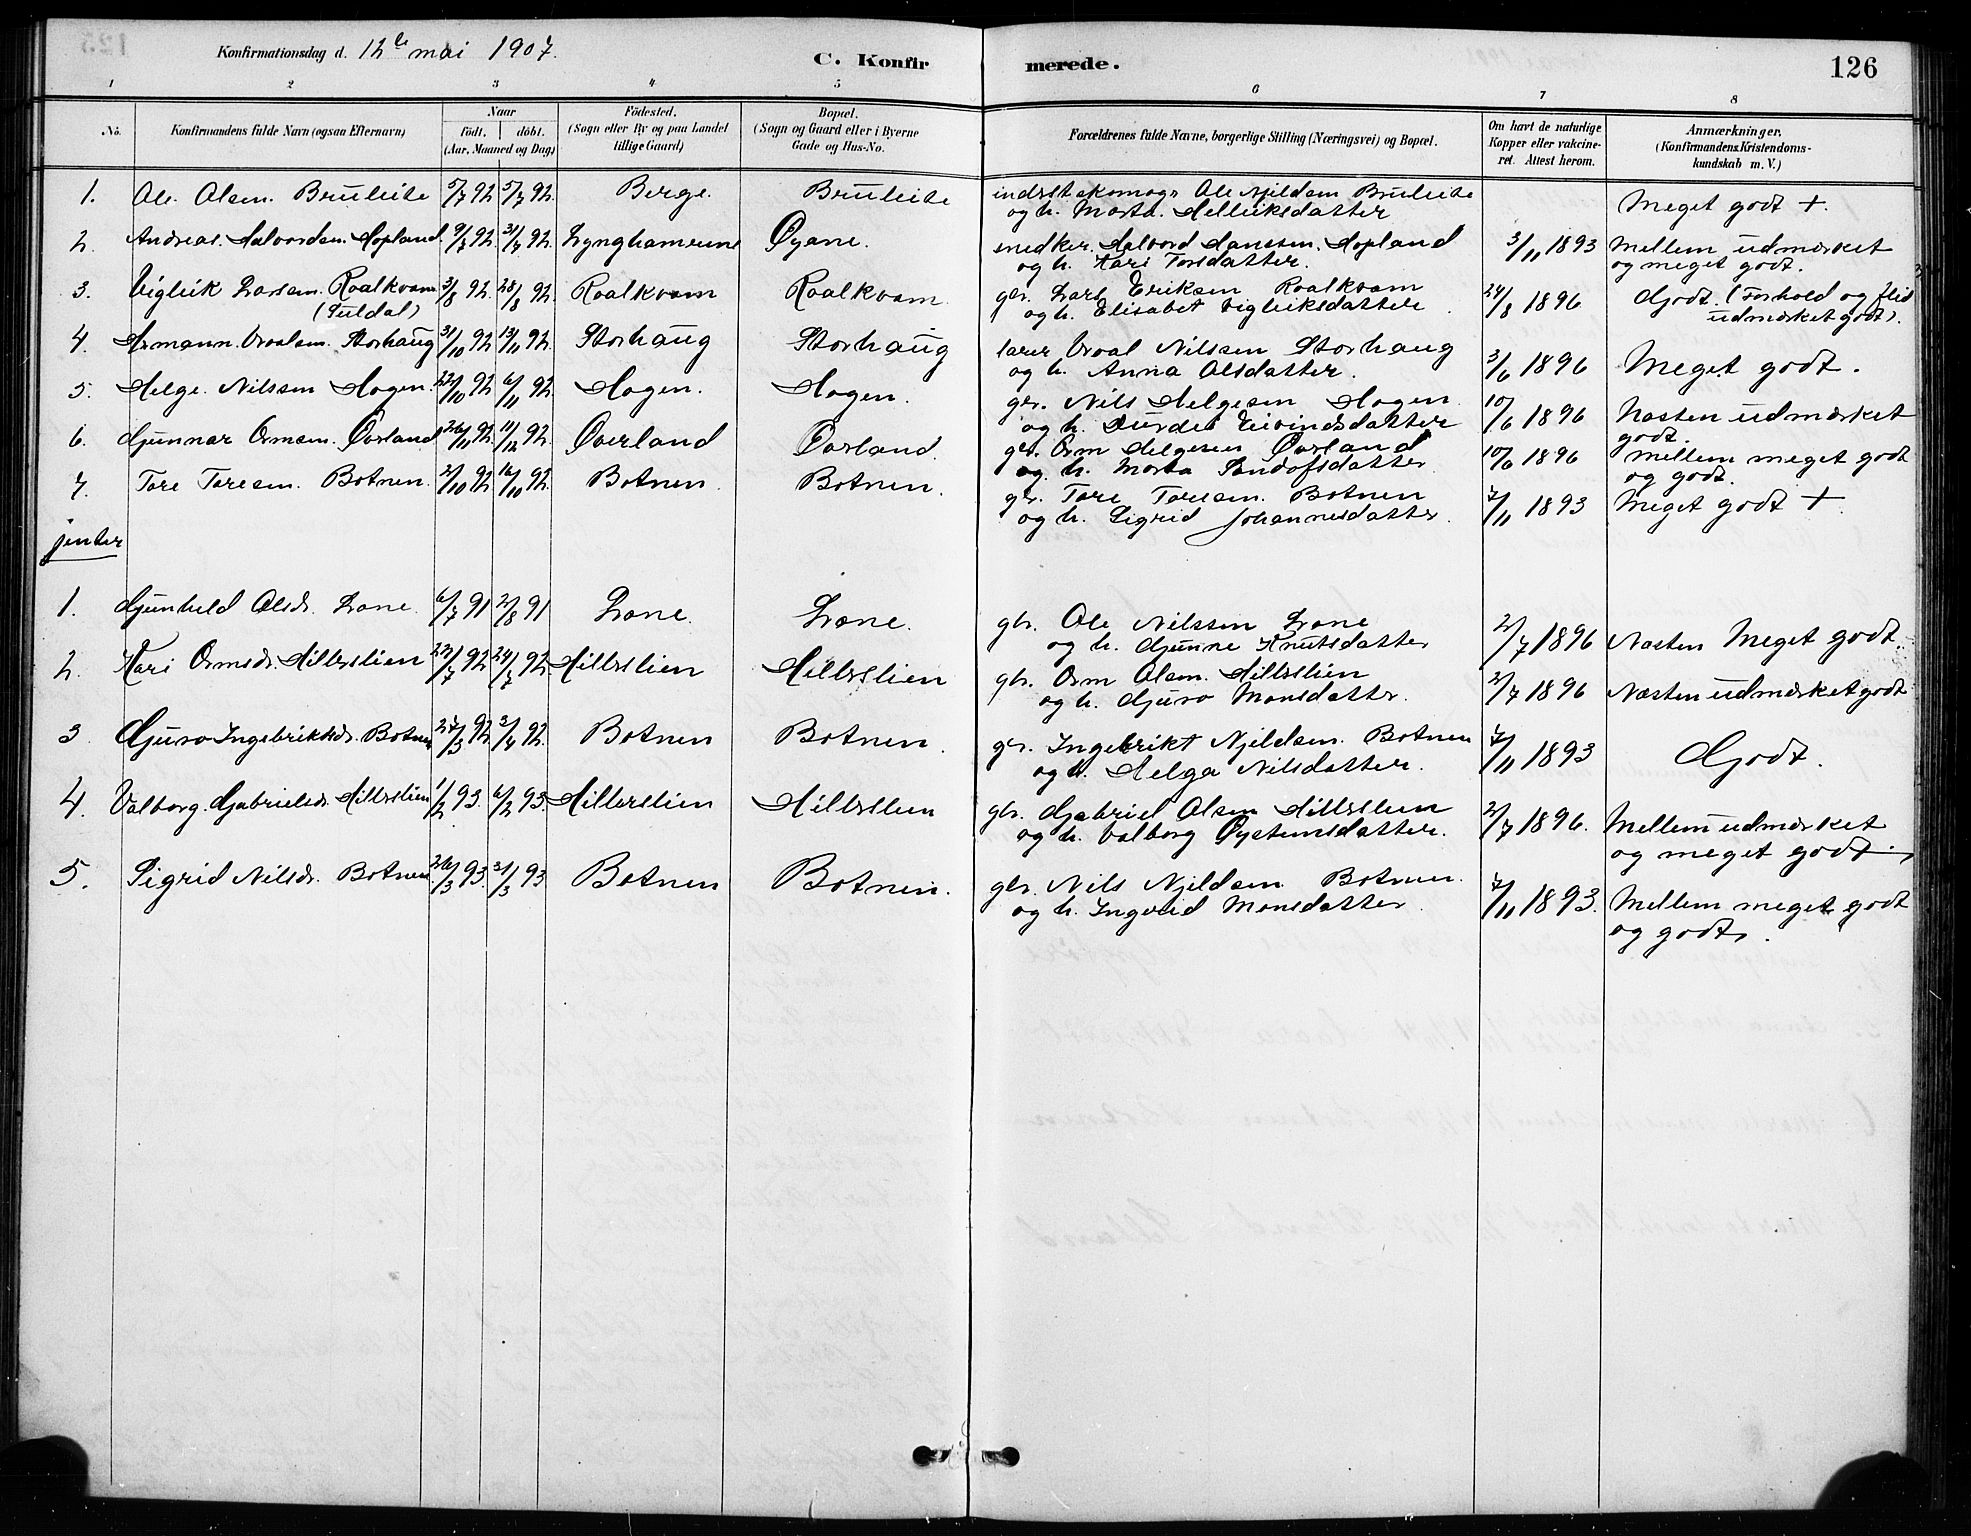 Konfirmationsdag d. 12te mai 1907.
C. Konfirmerede.
126
1 2 3 4 5 6 7 8
No.
Konfirmandens fulde Navn (ogsaa Efternavn)
Naar
født. døbt.
(Aar, Maaned og Dag)
Födested.
(Sogn eller By og paa Landet
tillige Gaard)
Bopæl.
(Sogn og Gaard eller i Byerne
Gade og Hus-No.
Forældrenes fulde Navne, borgerlige Stilling (Næringsvei) og Bopæl.
Om havt de naturlige
Kopper eller vakcine-
ret. Attest herom.
Anmærkninger.
(Konfirmandens Kristendoms-
kundskab m. V.)
1. Ole Olsen Bruleite 5/7 92 Berge. Bruleite Ole Njeldsen Bruleite Meget godt +.
og h. Marta Helleiksdatter
2. Andreas Halvordsen Hopland. 92. 92. Lynghammeren Øyane. snedker Halvord Hanssen Hopland 3/11 1893 Mellem udmærket
og h. Kari Torsdatter. og meget godt.
3. Vigleik Larsen Roalkvam 3/8 92. 28/8 92. Roalkvam Roalkvam gbr. Lars Eriksen Roalkvam 24/8 1896 Godt. (Forhold og flid
(Suldal) og h. Elisabet Vigleiksdatter udmærket godt).
4. Osmann Storhaug 31/10 92 13/11 92. Storhaug Storhaug lærer Nilssen Storhaug 3/6 1896 Meget godt.
og h. Anna Olsdatter.
5. Helge Nilssen Hogen. 92 6/11 92 Hogen. Hogen. gbr. Nils Helgesen Hogen 10/6 1896 Næsten udmærket
og h. Eivindsdatter godt.
6. Gunnar Ormsen Øverland 26/11 92. 11/12 92. Øverland Øverland. gbr. Orm Helgesen Øverland 10/6 1896 Mellem meget godt
og h. Marta og godt.
7. Tore Toresen Botnen 2/10 92 16/10 92. Botnen. Botnen. gbr. Tore Toresen Botnen 7/11 1893 Meget godt +
og h. Sigrid Johannesdatter.
jenter
1. Gunhild Olsdr. Lone 6/7 91 2/8 91 Lone. Lone. gbr. Ole Nilssen Lone 2/7 1896 Næsten Meget godt.
og h. Gunne Knutsdatter
2. Kari Ormsdr. Hillerslien 92 24/7 92. Hillerslien Hillerslien gbr. Orm Olsen Hillerslien 2/7 1896 Næsten udmærket godt
og h. Guro Monsdatter.
3. Guro Ingebriktsdr. Botnen 27/3 92 3/4 92. Botnen Botnen. gbr. Ingebrikt Njeldsen Botnen 7/11 1893 Godt.
og h. Helga Nilsdatter.
4. Valborg Gabrielsdr. Hillerslien 1/2 93. 6/2 93. Hillerslien Hillerslien gbr. Gabriel Olsen Hillerslien 2/7 1896. Mellem udmærket
og h. Valborg Øysteinsdatter. og meget godt.
5. Sigrid Nilsdr. Botnen 26/3 93. 31/3 93 Botnen Botnen. gbr. Nils Njeldsen Botnen. 7/11 1893. Mellem meget godt
og h. Ingveld Monsdatter og godt.